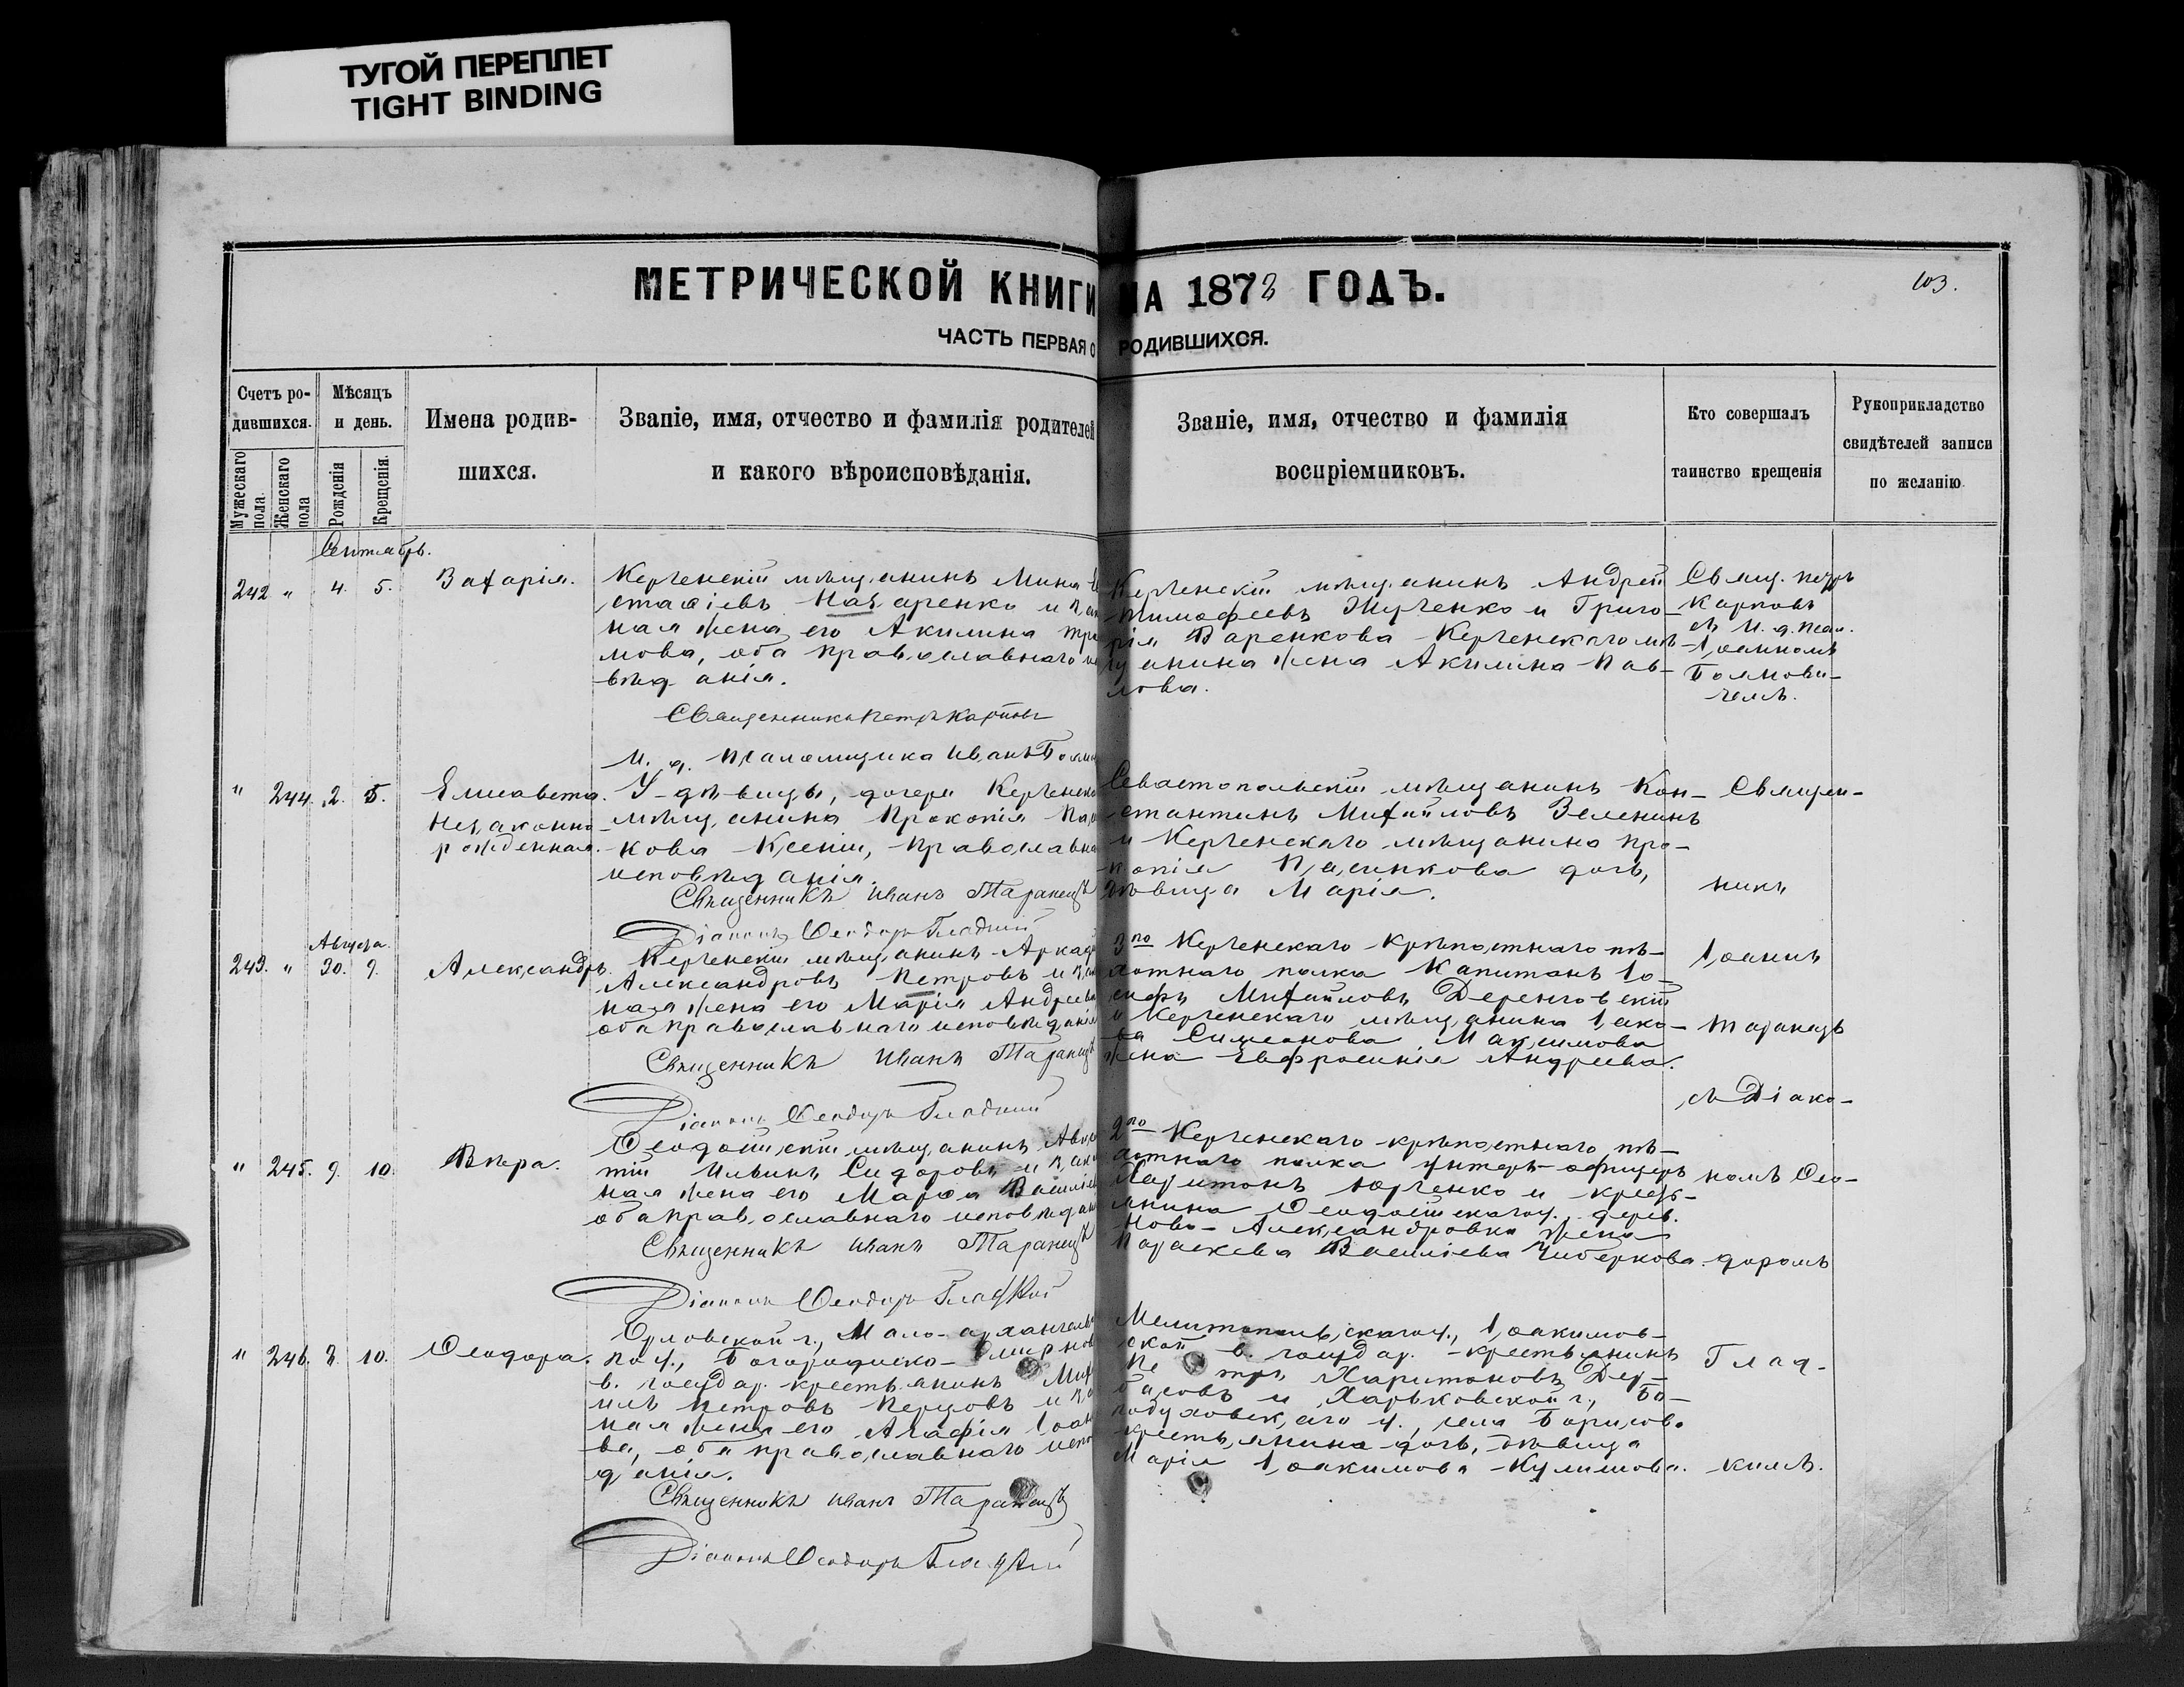 ТУГОЙ ПЕРЕПЛЕТ
TIGHT BINDING
МЕТРИЧЕСКОЙ КНИГИ НА 1878 ГОДЪ.
103.
ЧАСТЬ ПЕРВАЯ О РОДИВШИХСЯ.
Счетъ ро-
дившихся.
Мужескаго пола.
Женскаго пола
Мѣсяцъ
и день.
Рожденія
Крещенія.
Имена родив-
шихся.
Званіе, имя, отчество и фамилія родителей
и какого вѣроисповѣданія.
Званіе, имя, отчество и фамилія
воспріемниковъ.
Кто совершалъ
таинство крещенія
Рукоприкладство
свидѣтелей записи
по желанію
Сентябрь.
242 " 4. 5.
Захарія.
Керченскій мѣщанинъ Мина Ев
стафіевъ Назаренко и зак
ная жена его Акилина Тро
мова, оба православнаго
вѣданія.
Священникъ Петръ Карповъ
И. д. Псаломщика Иванъ Боян
Керченскій мѣщанинъ Андрей
Тимофеевъ Жученко и Григо-
рія Варенкова Керченскаго мѣ-
щанина жена Акилина Пав-
лова.
Свящ. Петръ
Карповъ
съ И. д. псал.
Іоанномъ
Боянови-
чемъ.
" 244. 2. 5.
Елисавета.
Незаконно-
рожденная.
У дѣвицы, дочери Керченска
мѣщанина Прокопія
кова Ксеніи, Православна
исповѣданія.
Священникъ Иванъ Таранецъ
Діаконъ Ѳеодоръ Гладкий
Севастопольскій мѣщанинъ Кон-
стантинъ Михайловъ Зеленинъ
и Керченскаго мѣщанина Про-
копія Пасинкова дочь,
дѣвица Марія.
Священ-
никъ
Августа.
243. " 30. 9.
Александръ.
Керченскій мѣщанинъ Аркад
Александровъ Петровъ и зак
ная жена его Марія Андреева
оба православнаго исповѣданія
Священникъ Иванъ Таранецъ
Діаконъ Ѳеодоръ Гладкий
3го Керченскаго крѣпостнаго пѣ-
хотнаго полка Капитанъ Іо-
сифъ Михайловъ Деренговскій
и Керченскаго мѣщанина Іако-
ва Симеонова Максимова
жена Евфросинія Андреева.
Іоаннъ
Таранецъ
съ Діако-
" 245. 9. 10.
Вѣра.
Ѳеодосійскій мѣщанинъ
тій Ильинъ Сидоровъ и зак
ная жена его Марѳа Василіе
оба православнаго исповѣдан
Священникъ Иванъ Таранецъ
Діаконъ Ѳеодоръ Гладкой
2го Керченскаго крѣпостнаго пѣ-
хотнаго полка унтеръ-офицеръ
Харитонъ Юрченко и кресть-
янина Ѳеодосійскаго у. дерев.
Ново-Александровка жена
Параскева Василіева Чиберкова.
номъ Ѳео-
доромъ
" 246. 2. 10.
Ѳеодора.
Орловской г., Мало-архангельс
по у., Богородиско-Смирнов
в. государ. крестьянинъ Мих
илъ Петровъ Перцовъ и за
ная жена его Агафія Іоан
ва, оба православнаго испо
данія.
Священникъ Иванъ Таранецъ
Діаконъ Ѳеодоръ Гладкий
Мелитопольскаго у., Іоакимов-
ской в. государ. крестьянинъ
Петръ Харитоновъ Дер-
басовъ и Харьковской г., Бо-
годуховскаго у., села Борисов.
крестьянина дочь, дѣвица
Марія Іоакимова Кулишова.
Глад-
кимъ.